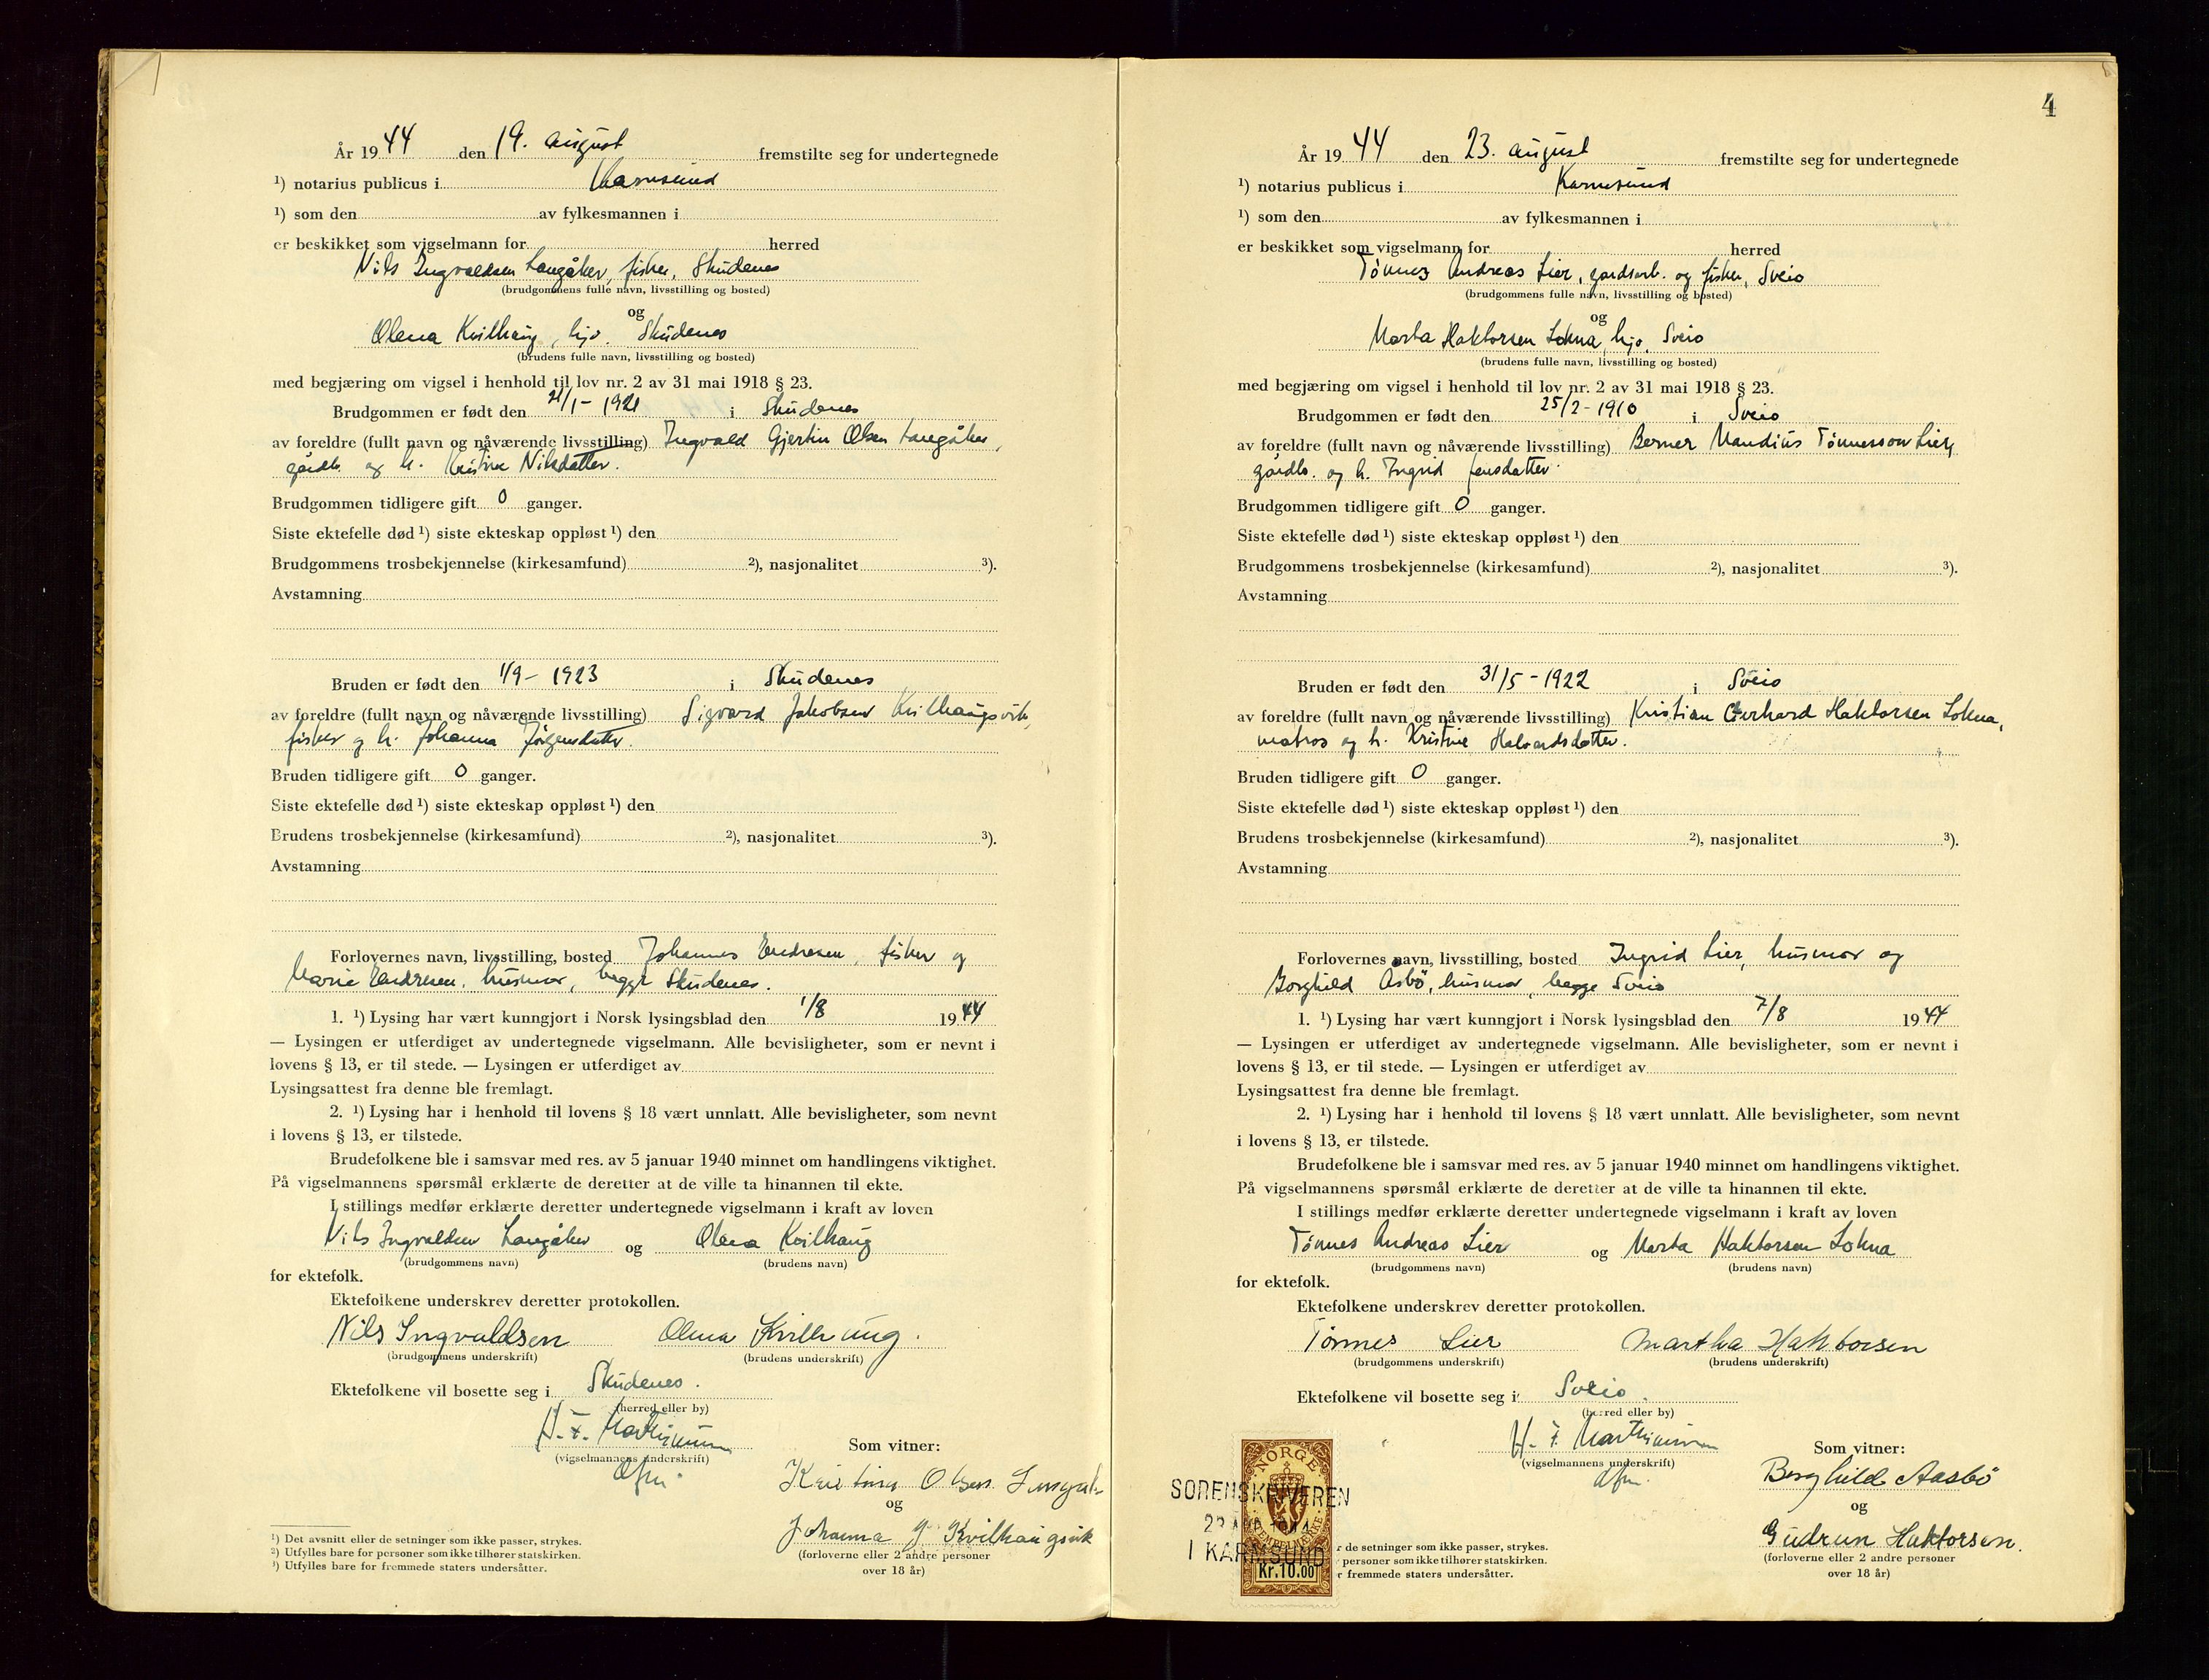 År 1944 den 19. august fremstilte seg for undertegnede
¹) notarius publicus i Karmsund
¹) som den av fylkesmannen i
er beskikket som vigselmann for herred
Nils Ingvaldsen Langåker, fisker, Skudenes
(brudgommens fulle navn, livsstilling og bosted)
og
Olena Kvilhaug, hjv. Skudenes
(brudens fulle navn, livsstilling og bosted)
med begjæring om vigsel i henhold til lov nr. 2 av 31 mai 1918 § 23.
Brudgommen er født den 21/1 - 1921 i Skudenes
av foreldre (fullt navn og nåværende livsstilling) Ingvald Gjertin Olsen Langåker,
gårdb. og h. Kristine Nilsdatter.
Brudgommen tidligere gift 0 ganger.
Siste ektefelle død ¹) siste ekteskap oppløst ¹) den
Brudgommens trosbekjennelse (kirkesamfund) ²), nasjonalitet ³).
Avstamning
Bruden er født den 1/9 - 1923 i Skudenes
av foreldre (fullt navn og nåværende livsstilling) Sigvard Jakobsen Kvilhaugsvik,
fisker og h. Johanna Jörgensdatter.
Bruden tidligere gift 0 ganger.
Siste ektefelle død ¹) siste ekteskap oppløst ¹) den
Brudens trosbekjennelse (kirkesamfund) ²), nasjonalitet ³).
Avstamning
Forlovernes navn, livsstilling, bosted Johannes Endresen, fisker og
Marie Endresen, husmor, begge Skudenes.
1. ¹) Lysing har vært kunngjort i Norsk lysingsblad den 1/8 1944
— Lysingen er utferdiget av undertegnede vigselmann. Alle bevisligheter, som er nevnt i
lovens § 13, er til stede. — Lysingen er utferdiget av
Lysingsattest fra denne ble fremlagt.
2. ¹) Lysing har i henhold til lovens § 18 vært unnlatt. Alle bevisligheter, som nevnt
i lovens § 13, er tilstede.
Brudefolkene ble i samsvar med res. av 5 januar 1940 minnet om handlingens viktighet.
På vigselmannens spørsmål erklærte de deretter at de ville ta hinannen til ekte.
I stillings medfør erklærte deretter undertegnede vigselmann i kraft av loven
Nils Ingvaldsen Langåker og Olena Kvilhaug
(brudgommens navn) (brudens navn)
for ektefolk.
Ektefolkene underskrev deretter protokollen.
Nils Ingvaldsen Olena Kvilhaug.
(brudgommens underskrift) (brudens underskrift)
Ektefolkene vil bosette seg i Skudenes.
(herred eller by)
H. F. Marthinsen
(vigselmannens underskrift)
Som vitner:
Kristina Olsen
og
Johanna J Kvilhaugsvik
(forloverne eller 2 andre personer
over 18 år)
¹) Det avsnitt eller de setninger som ikke passer, strykes.
²) Utfylles bare for personer som ikke tilhører statskirken.
³) Utfylles bare for fremmede staters undersåtter.
4
År 1944 den 23. august fremstilte seg for undertegnede
¹) notarius publicus i Karmsund
¹) som den av fylkesmannen i
er beskikket som vigselmann for herred
Tönnes Andreas Lier, gardsarb. og fisker, Sveio
(brudgommens fulle navn, livsstilling og bosted)
og
Marta Haktorsen Lokna, hjv. Sveio
(brudens fulle navn, livsstilling og bosted)
med begjæring om vigsel i henhold til lov nr. 2 av 31 mai 1918 § 23.
Brudgommen er født den 25/2 - 1910 i Sveio
av foreldre (fullt navn og nåværende livsstilling) Berner Mandius Tönnesson Lier,
gårdb. og h. Ingrid Jensdatter.
Brudgommen tidligere gift 0 ganger.
Siste ektefelle død ¹) siste ekteskap oppløst ¹) den
Brudgommens trosbekjennelse (kirkesamfund) ²), nasjonalitet ³).
Avstamning
Bruden er født den 31/5 - 1922 i Sveio
av foreldre (fullt navn og nåværende livsstilling) Kristian Gerhard Haktorsen Lokna,
matros og h. Kristine Halvardsdatter.
Bruden tidligere gift 0 ganger.
Siste ektefelle død ¹) siste ekteskap oppløst ¹) den
Brudens trosbekjennelse (kirkesamfund) ²), nasjonalitet ³).
Avstamning
Forlovernes navn, livsstilling, bosted Ingrid Lier, husmor og
Borghild Asbö, husmor, begge Sveio
1. ¹) Lysing har vært kunngjort i Norsk lysingsblad den 7/8 1944
— Lysingen er utferdiget av undertegnede vigselmann. Alle bevisligheter, som er nevnt i
lovens § 13, er til stede. — Lysingen er utferdiget av
Lysingsattest fra denne ble fremlagt.
2. ¹) Lysing har i henhold til lovens § 18 vært unnlatt. Alle bevisligheter, som nevnt
i lovens § 13, er tilstede.
Brudefolkene ble i samsvar med res. av 5 januar 1940 minnet om handlingens viktighet.
På vigselmannens spørsmål erklærte de deretter at de ville ta hinannen til ekte.
I stillings medfør erklærte deretter undertegnede vigselmann i kraft av loven
Tönnes Andreas Lier og Marta Haktorsen Lokna
(brudgommens navn) (brudens navn)
for ektefolk.
Ektefolkene underskrev deretter protokollen.
Tönnes Lier Martha Haktorsen
(brudgommens underskrift) (brudens underskrift)
Ektefolkene vil bosette seg i Sveio.
(herred eller by)
H. F. Marthinsen
(vigselmannens underskrift)
Som vitner:
Borghild Aasbö
og
Gudrun Haktorsen.
(forloverne eller 2 andre personer
over 18 år)
NORGE
STEMPELMERKE
Kr.10.00
SORENSKRIVEREN
23 AUG 1944
I KARMSUND
r de setninger som ikke passer, strykes.
personer som ikke tilhører statskirken.
r fremmede staters undersåtter.